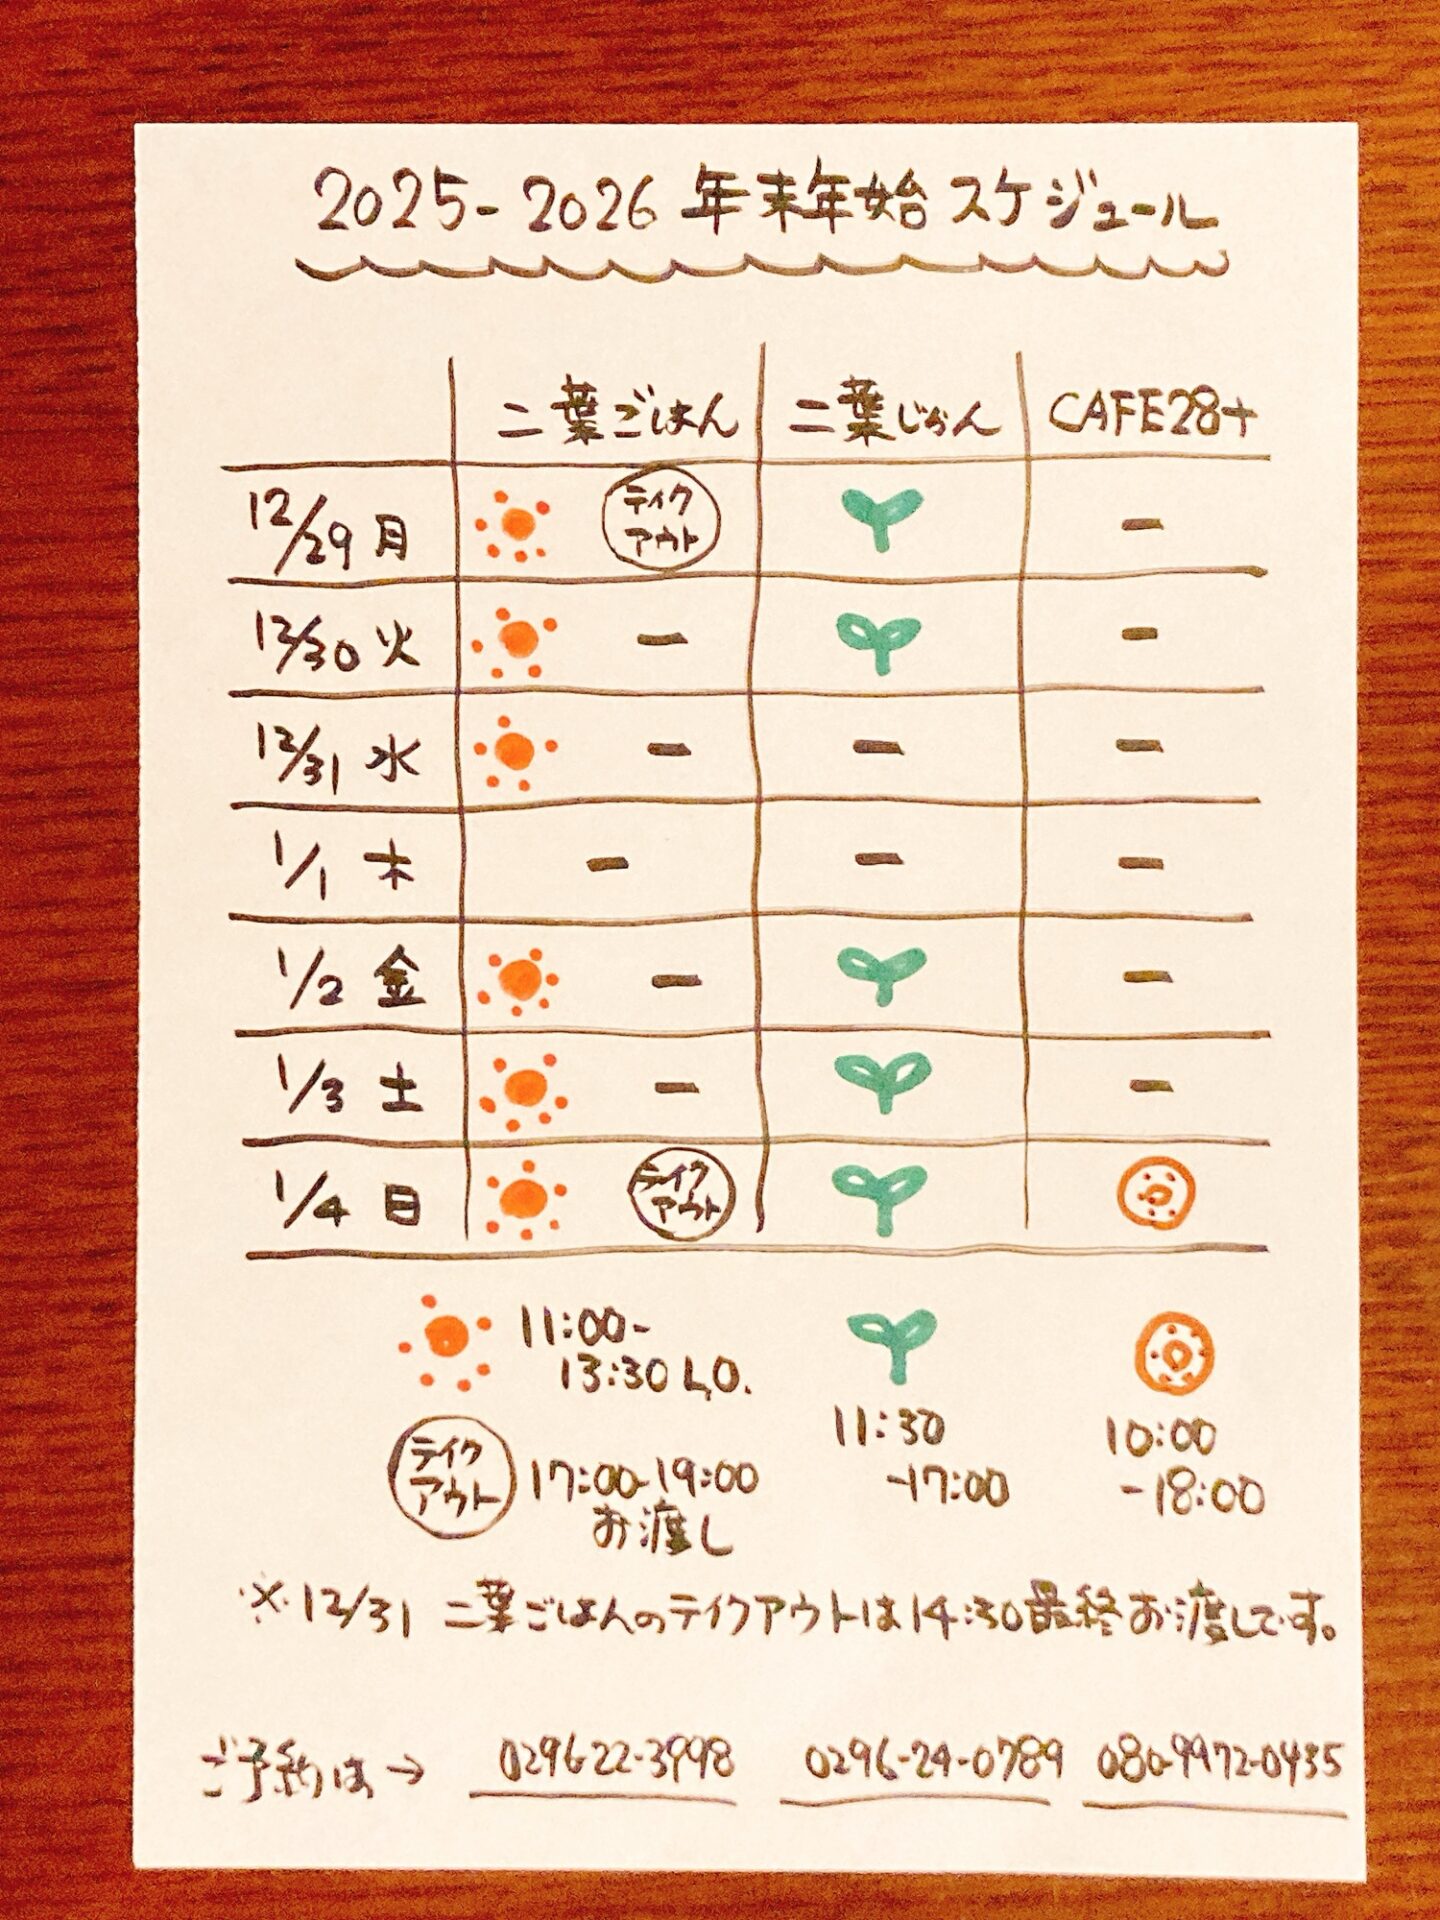 2025-2026 年末年始スケジュール
二葉ごはん 二葉じかん CAFE28+
12/29 月 テイクアウト ー
12/30 火 ー ー
12/31 水 ー ー ー
1/1 木 ー ー ー
1/2 金 ー ー
1/3 土 ー ー
1/4 日 テイクアウト
11:00-
13:30 L.O.
テイクアウト
17:00-19:00
お渡し
11:30
-17:00
10:00
-18:00
※12/31 二葉ごはんのテイクアウトは14:30最終お渡しです。
ご予約は→ 0296-22-3998 0296-24-0789 080-9972-0435